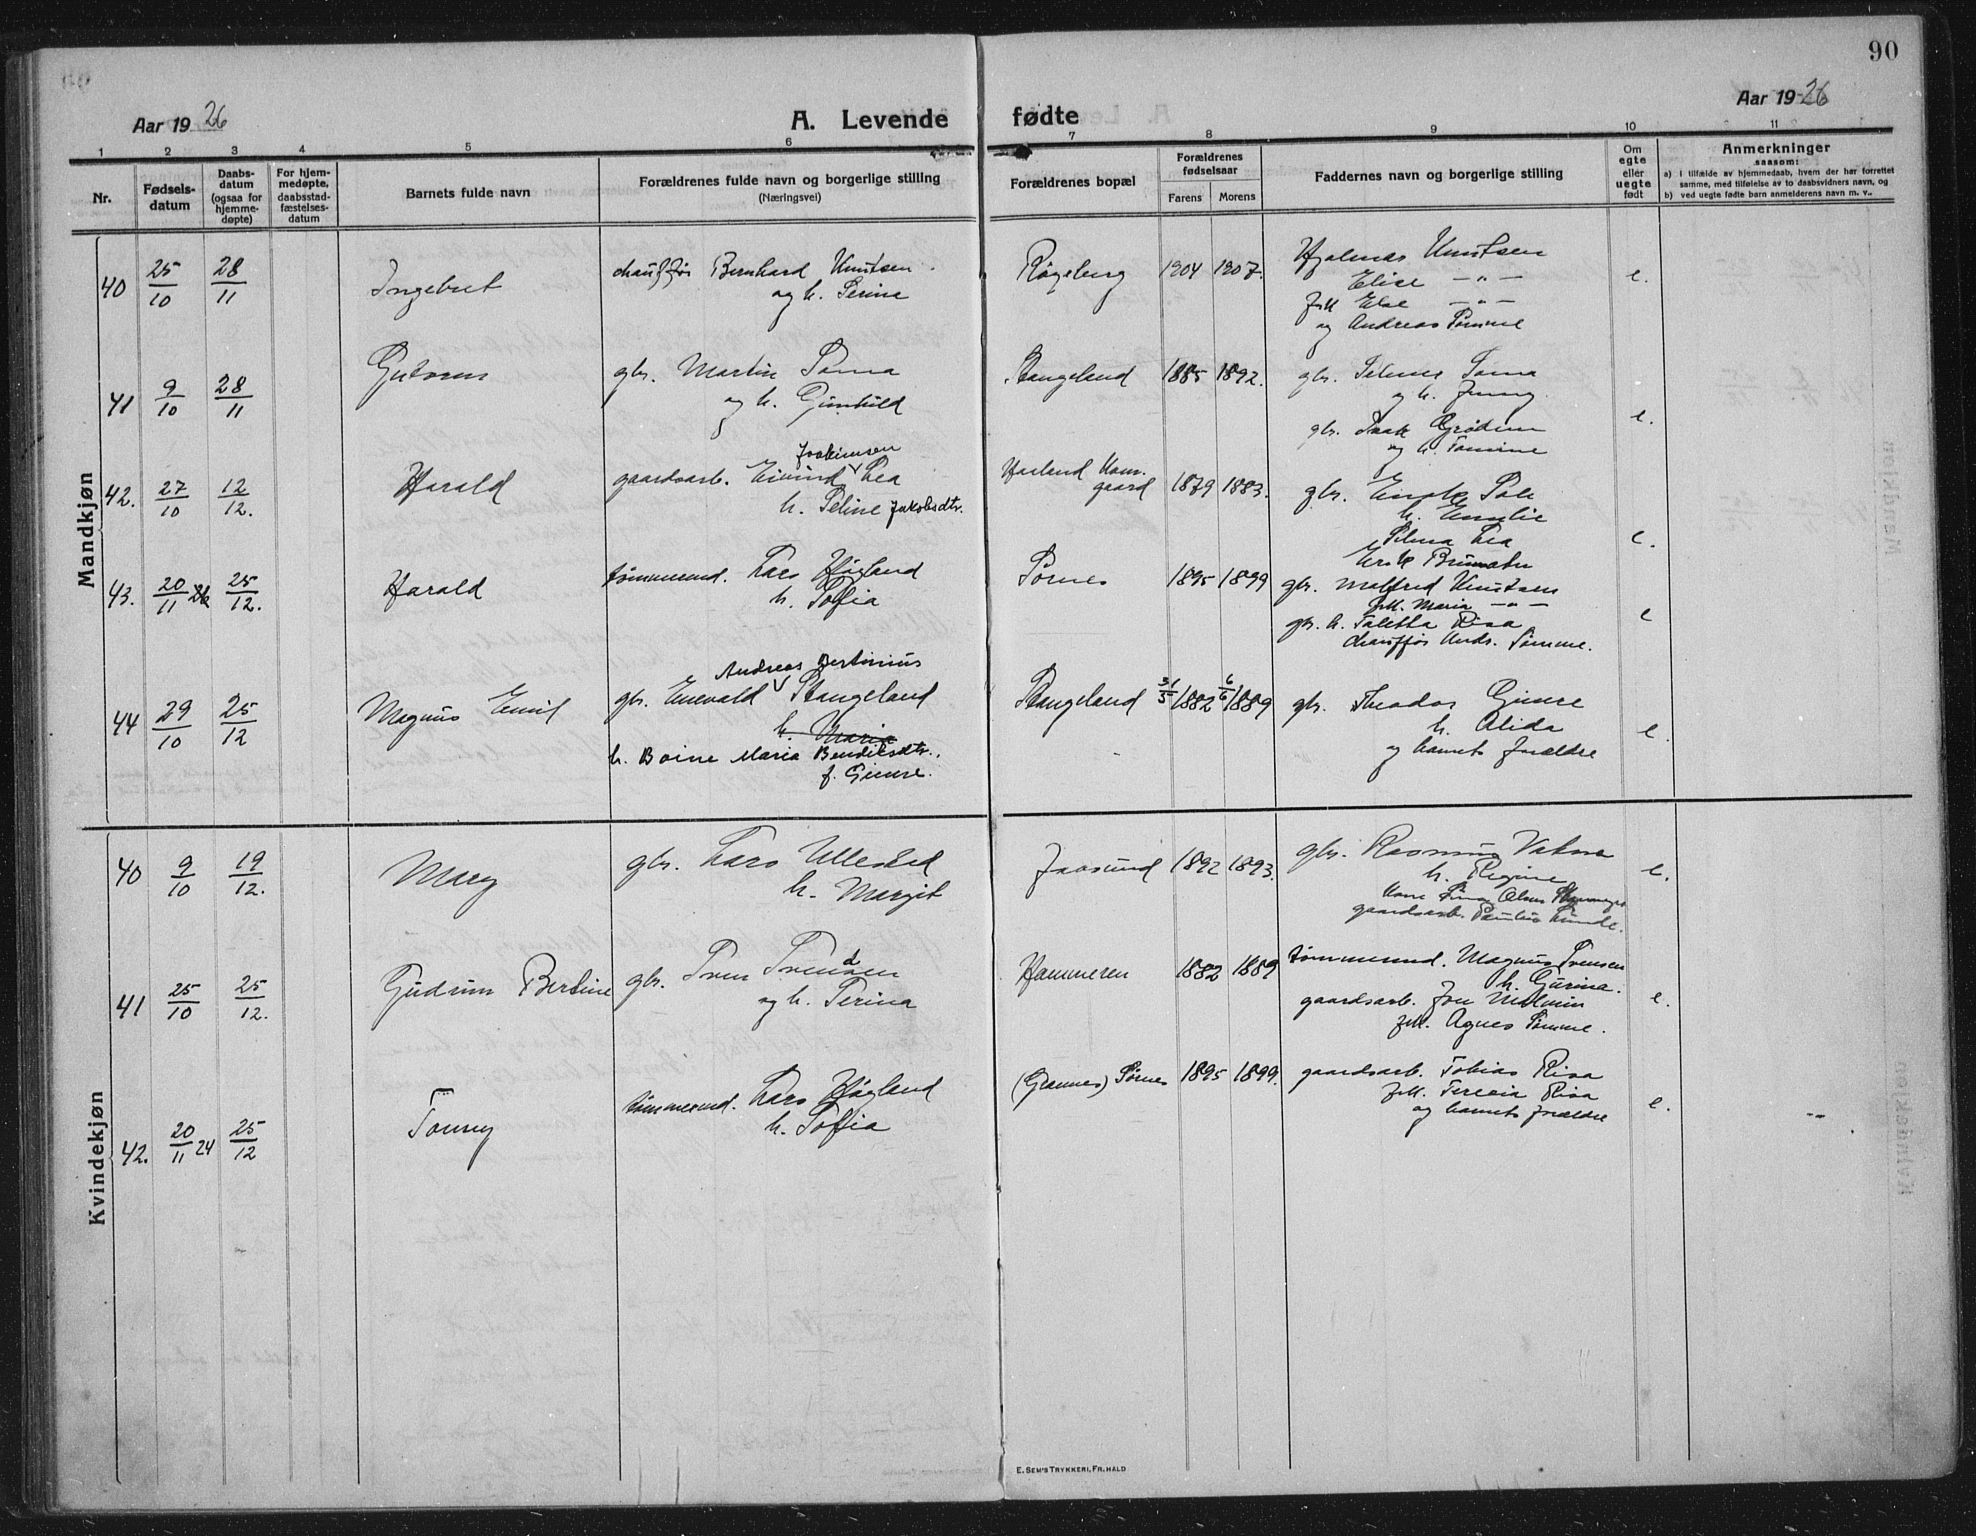 90
Aar 1926
A. Levende fødte
Aar 1926
1 2 3 4 5 6 7 8 9 10 11
Nr.
Fødselsdatum
Daabsdatum (ogsaa for hjemmedøpte)
For hjemmedøpte, daabsstadfæstelsesdatum
Barnets fulde navn
Forældrenes fulde navn og borgerlige stilling
(Næringsvei)
Forældrenes bopæl
Forældrenes fødselsaar
Farens Morens
Faddernes navn og borgerlige stilling
Om egte eller uegte født
Anmerkninger
saasom:
a) i tilfælde av hjemmedaab, hvem der har forrettet
samme, med tilføielse av to daabsvidners navn, og
b) ved uegte fødte barn anmelderens navn m. v..
Mandkjøn
40 25/10 28/11 Ingebret
chauffør Bernhard Knutsen
og h. Serina
Røgeberg 1904 1907.
Hjalmar Knutsen
Elise — " —
frk Else — " —
og Andreas Sømme
e.
41 9/10 28/11
gbr. Martin Soma
og h. Gunhild
Stangeland 1885 1892.
gbr. Selmer Soma
og h. Jenny
gbr. Isak Grødem
og h. Tomine
e.
42. 27/10 12/12. Harald
Joakimsen
gaardsarb. Eivind Lea
h. Seline Jakobsdtr.
Harland Komgaard 1879 1883.
gbr. Enok Sele
h. Emelie
Selma Lea
Erik
e.
43. 20/11 26 25/12. Harald
tømmermd. Lars Høgland
h. Sofia
Sørnes 1895 1899
gbr. Malfred Knutsen
frk. Maria — " —
gbr. h. Taletta Risa
chauffør Andr. Sømme.
e
44 29/10 25/12 Magnus Emil
Andreas Bertinius
gbr. Enevald Stangeland
h. Maria
h. Boine Maria Bendiksdtr.
f. Gimre.
Stangeland 31/5 1882 6/6 1889
gbr. Theodor Gimre
h. Alida
og barnets forældre
e.
Kvindekjøn
40 9/10 19/12. Mary
gbr. Lars Ullestad
h. Margit
Jaasund 1892 1893.
gbr. Rasmus
h. Regine
gaardsarb. Paulus Lunde.
e.
41 25/10 25/12. Gudrun Bertine
gbr. Sven Svendsen
og h. Serina
Hammeren 1882 1889
tømmermd. Magnus Svensen
h. Gurina.
gaardsarb. Jon Malmin
frk. Agnes Sømme.
e.
42. 20/11 24 25/12 Tonny
tømmermd. Lars Høgland
h. Sofia
(Grannes) Sørnes 1895 1899.
gaardsarb. Tobias Risa
frk. Teresia Risa
og barnets forældre
e.
E. SEM'S TRYKKERI, FR.HALD